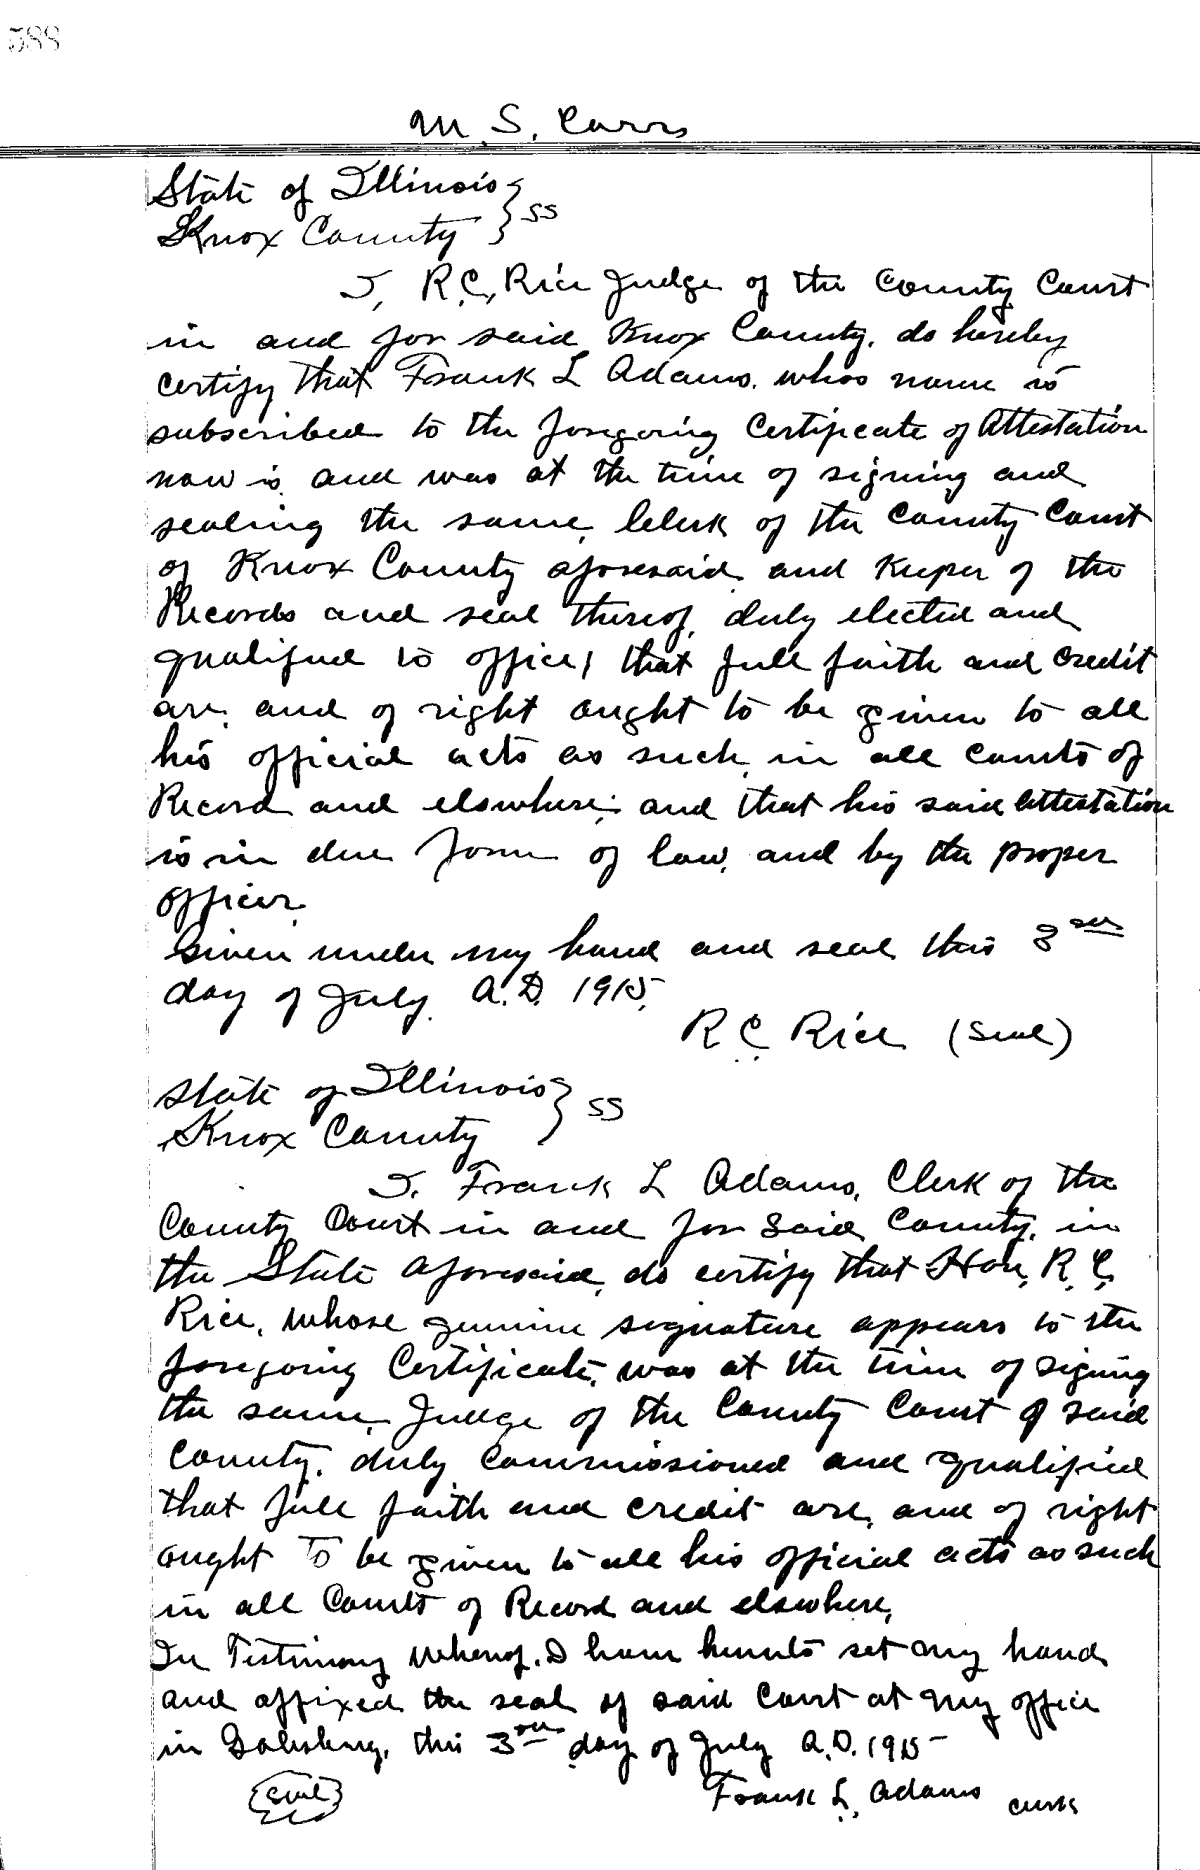 588
M. S. Carrs
State of Illinois } ss
Knox County }
I, R. C. Rice Judge of the County Court
in and for said Knox County, do hereby
certify that Frank L Adams, whos name is
subscribed to the foregoing Certificate of Attestation
now is, and was at the time of signing and
sealing the same, Clerk of the County Court
of Knox County aforesaid, and Keeper of the
Records and seal thereof, duly elected and
qualified to office, that full faith and credit
are, and of right ought to be given to all
his official acts as such, in all courts of
Record and elsewhere; and that his said Attestation
is in due form of law, and by the proper
officer.
Given under my hand and seal this 3rd
day of July, A.D. 1915.
R. C. Rice (Seal)
State of Illinois } ss
Knox County }
I, Frank L Adams, Clerk of the
County Court in and for said County, in
the State aforesaid, do certify that Hon, R. C.
Rice, whose genuine signature appears to the
foregoing Certificate, was at the time of signing
the same, Judge of the County Court of said
County, duly commissioned and qualified
that full faith and credit are, and of right
ought to be given to all his official acts as such
in all Courts of Record and elsewhere,
In Testimony Whereof, I have hereunto set my hand
and affixed the seal of said Court at my office
in Galesburg, this 3rd day of July A.D. 1915
(Seal) Frank L. Adams Clerk